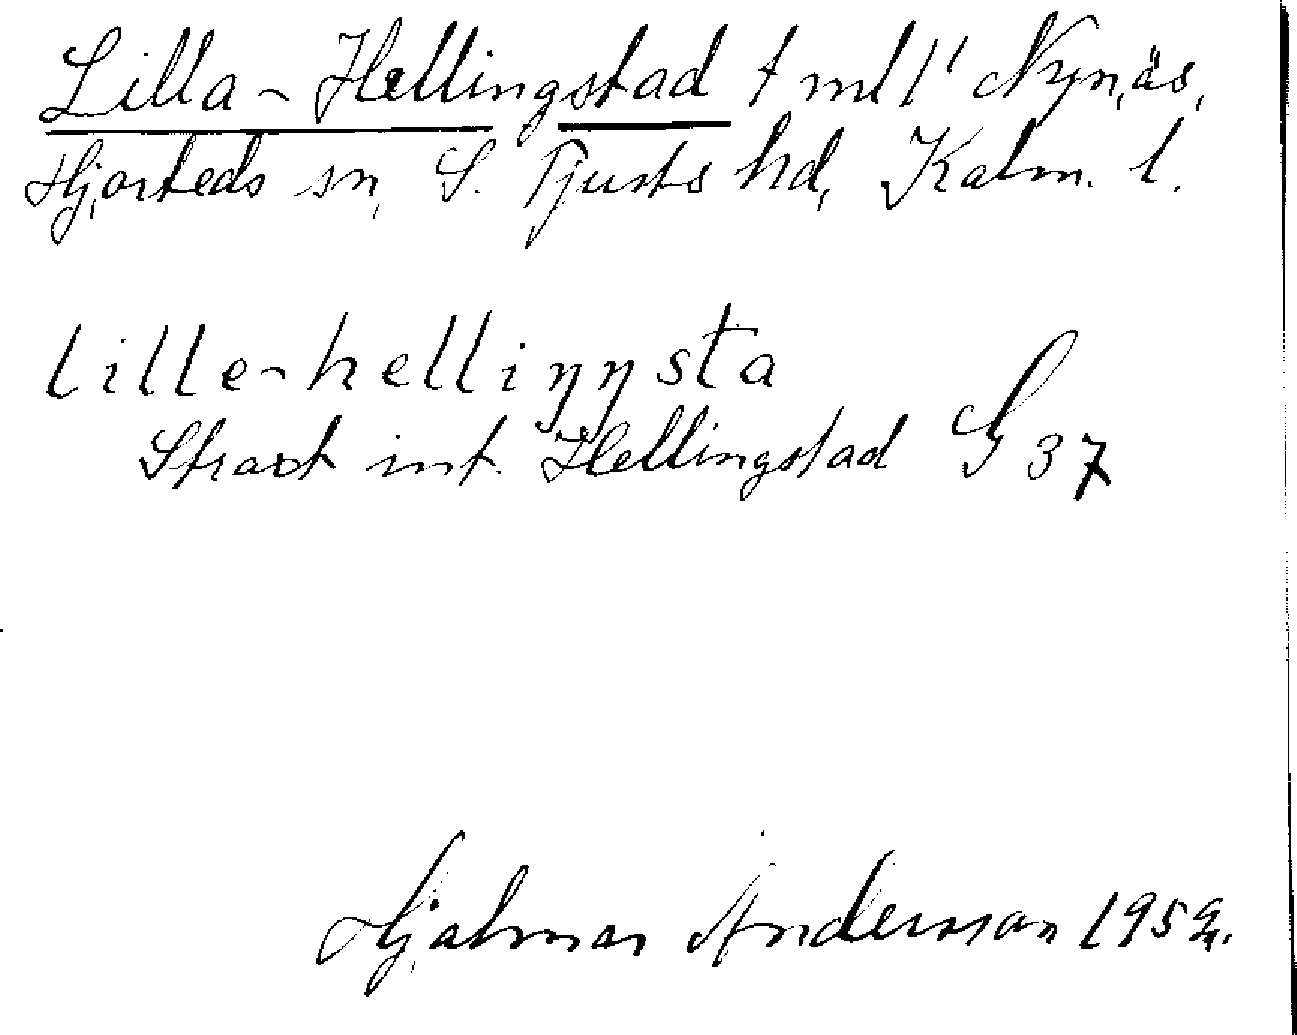 Lilla-Hellingstad t ml 1' Nynäs,
Hjorteds sn, S. Tjusts hd, Kalm. l.
lille-hellinŋsta
Strax int. Hellingstad G 37
Hjalmar Anderson 1952.